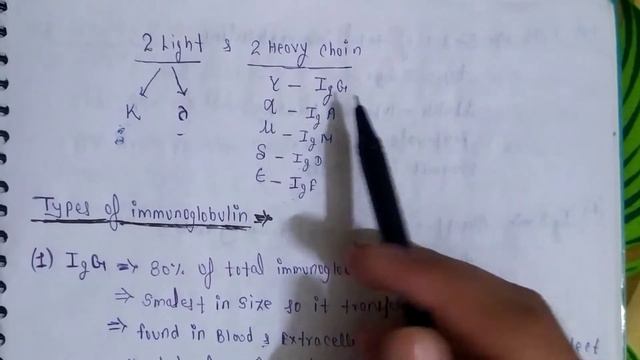 2 Light & 2 Heavy chain
K
γ - IgG
α - IgA
μ - IgM
δ - IgD
ε - IgE
Types of immunoglobulin ⇒
(1) IgG ⇒ 80% of total immunogl
⇒ Smalest in size so it
⇒ found in Blood &